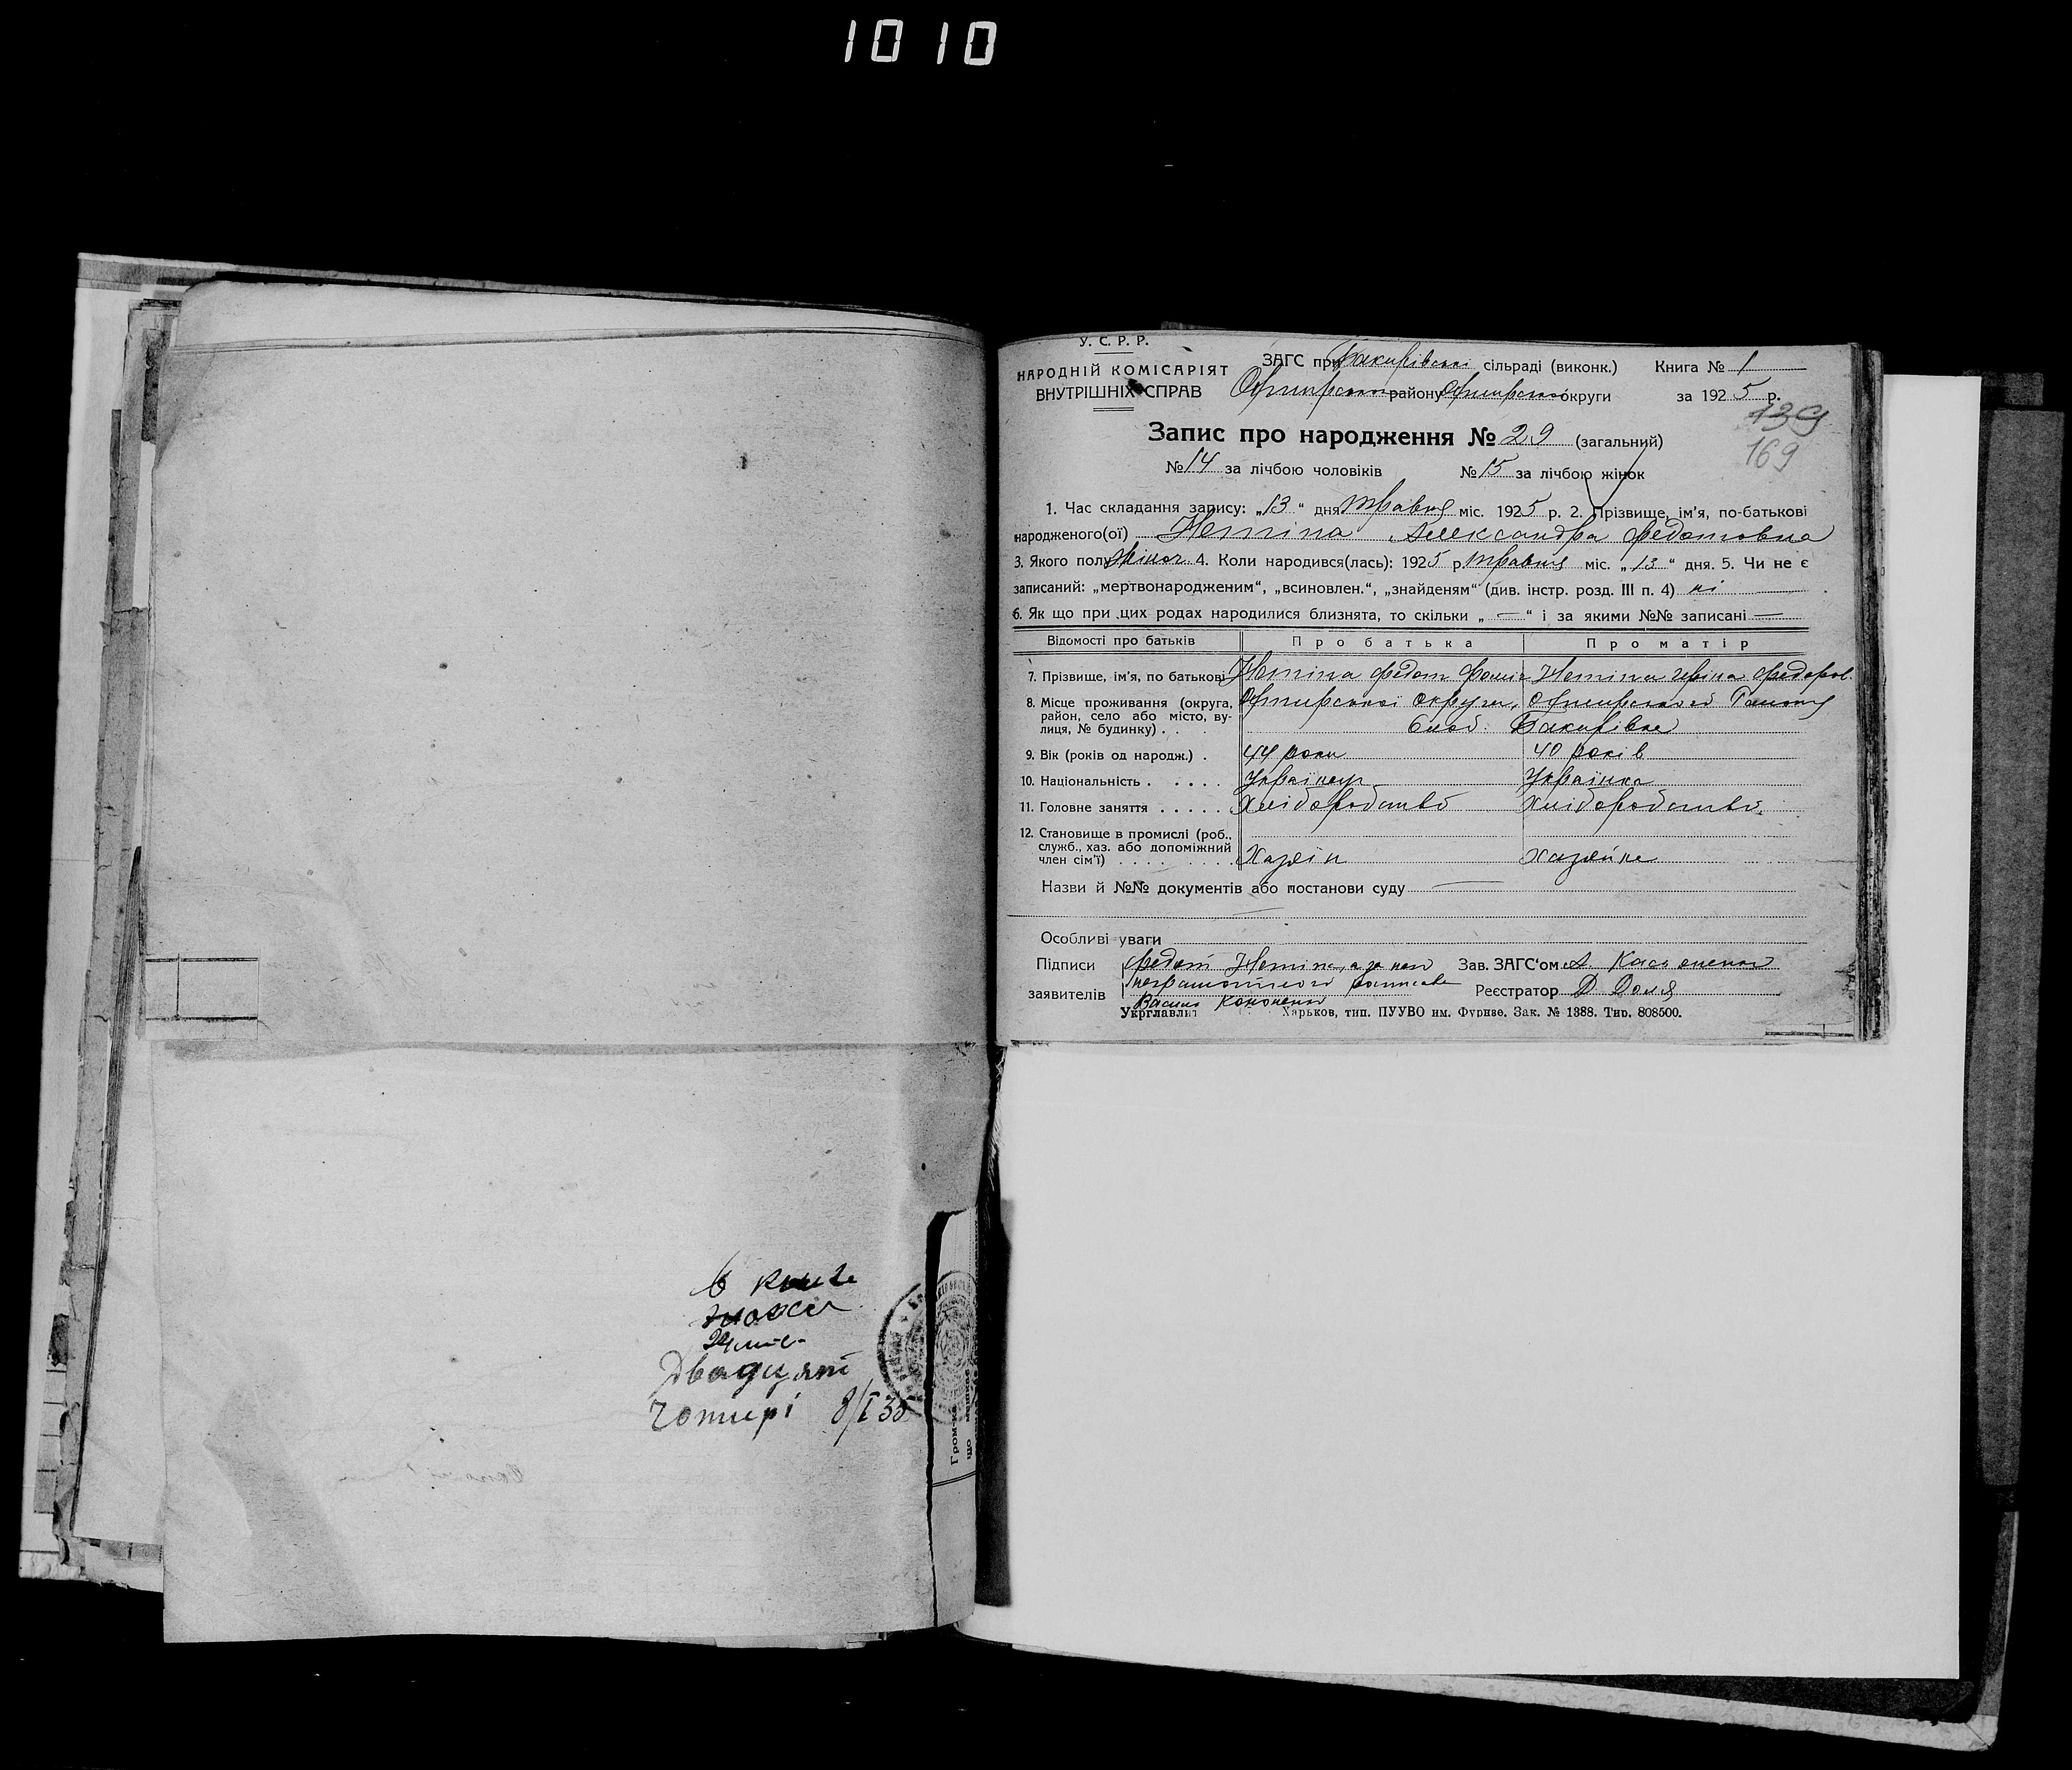 1010
В книзі
24 лист
Двадцят
Чотирі 8/I 35
У. С. Р. Р.
НАРОДНІЙ КОМІСАРІЯТ
ВНУТРІШНІХ СПРАВ
ЗАГС при Бакирівські сільраді (виконк.) Книга № 1
району округи за 1925 р.
139
169
Запис про народження № 29 (загальний)
№ 14 за лічбою чоловіків № 15 за лічбою жінок
1. Час складання запису: „13“ дня травня міс. 1925 р. 2. Прізвище, ім'я, по-батькові
народженого(ої) Нетіпа Александра Федотовна
3. Якого полу жіноч. 4. Коли народився(лась): 1925 р. травня міс. „13“ дня. 5. Чи не є
записаний: „мертвонародженим“, „всиновлен.“, „знайденям“ (див. інстр. розд. III п. 4) ні
6. Як що при цих родах народилися близнята, то скільки „—“ і за якими №№ записані —
Відомості про батьків Про батька Про матір
7. Прізвище, ім'я, по батькові Нетіпа Федот Нетіпа Федоров.
8. Місце проживання (округа, Охтирської округи, Охтирського Району
район, село або місто, ву- Слоб. Бакирівка
лиця, № будинку) . .
9. Вік (років од народж.) . 44 роки 40 років
10. Національність . . . . . Українец Українка
11. Головне заняття . . . . . Хліборобство Хліборобство
12. Становище в промислі (роб.,
служб., хаз. або допоміжний
член сім'ї) . . . . . . . . Хазяїн хазяйка
Назви й №№ документів або постанови суду —
Особливі уваги
Підписи Федот Нетіпа, а за него Зав. ЗАГС'ом А.
неграмотного
заявителів Василь Кононенко Реєстратор Д Доля
Укрглавліт Харьков, тип. ПУУВО им. Фрунзе. Зак. № 1388. Тир. 808500.